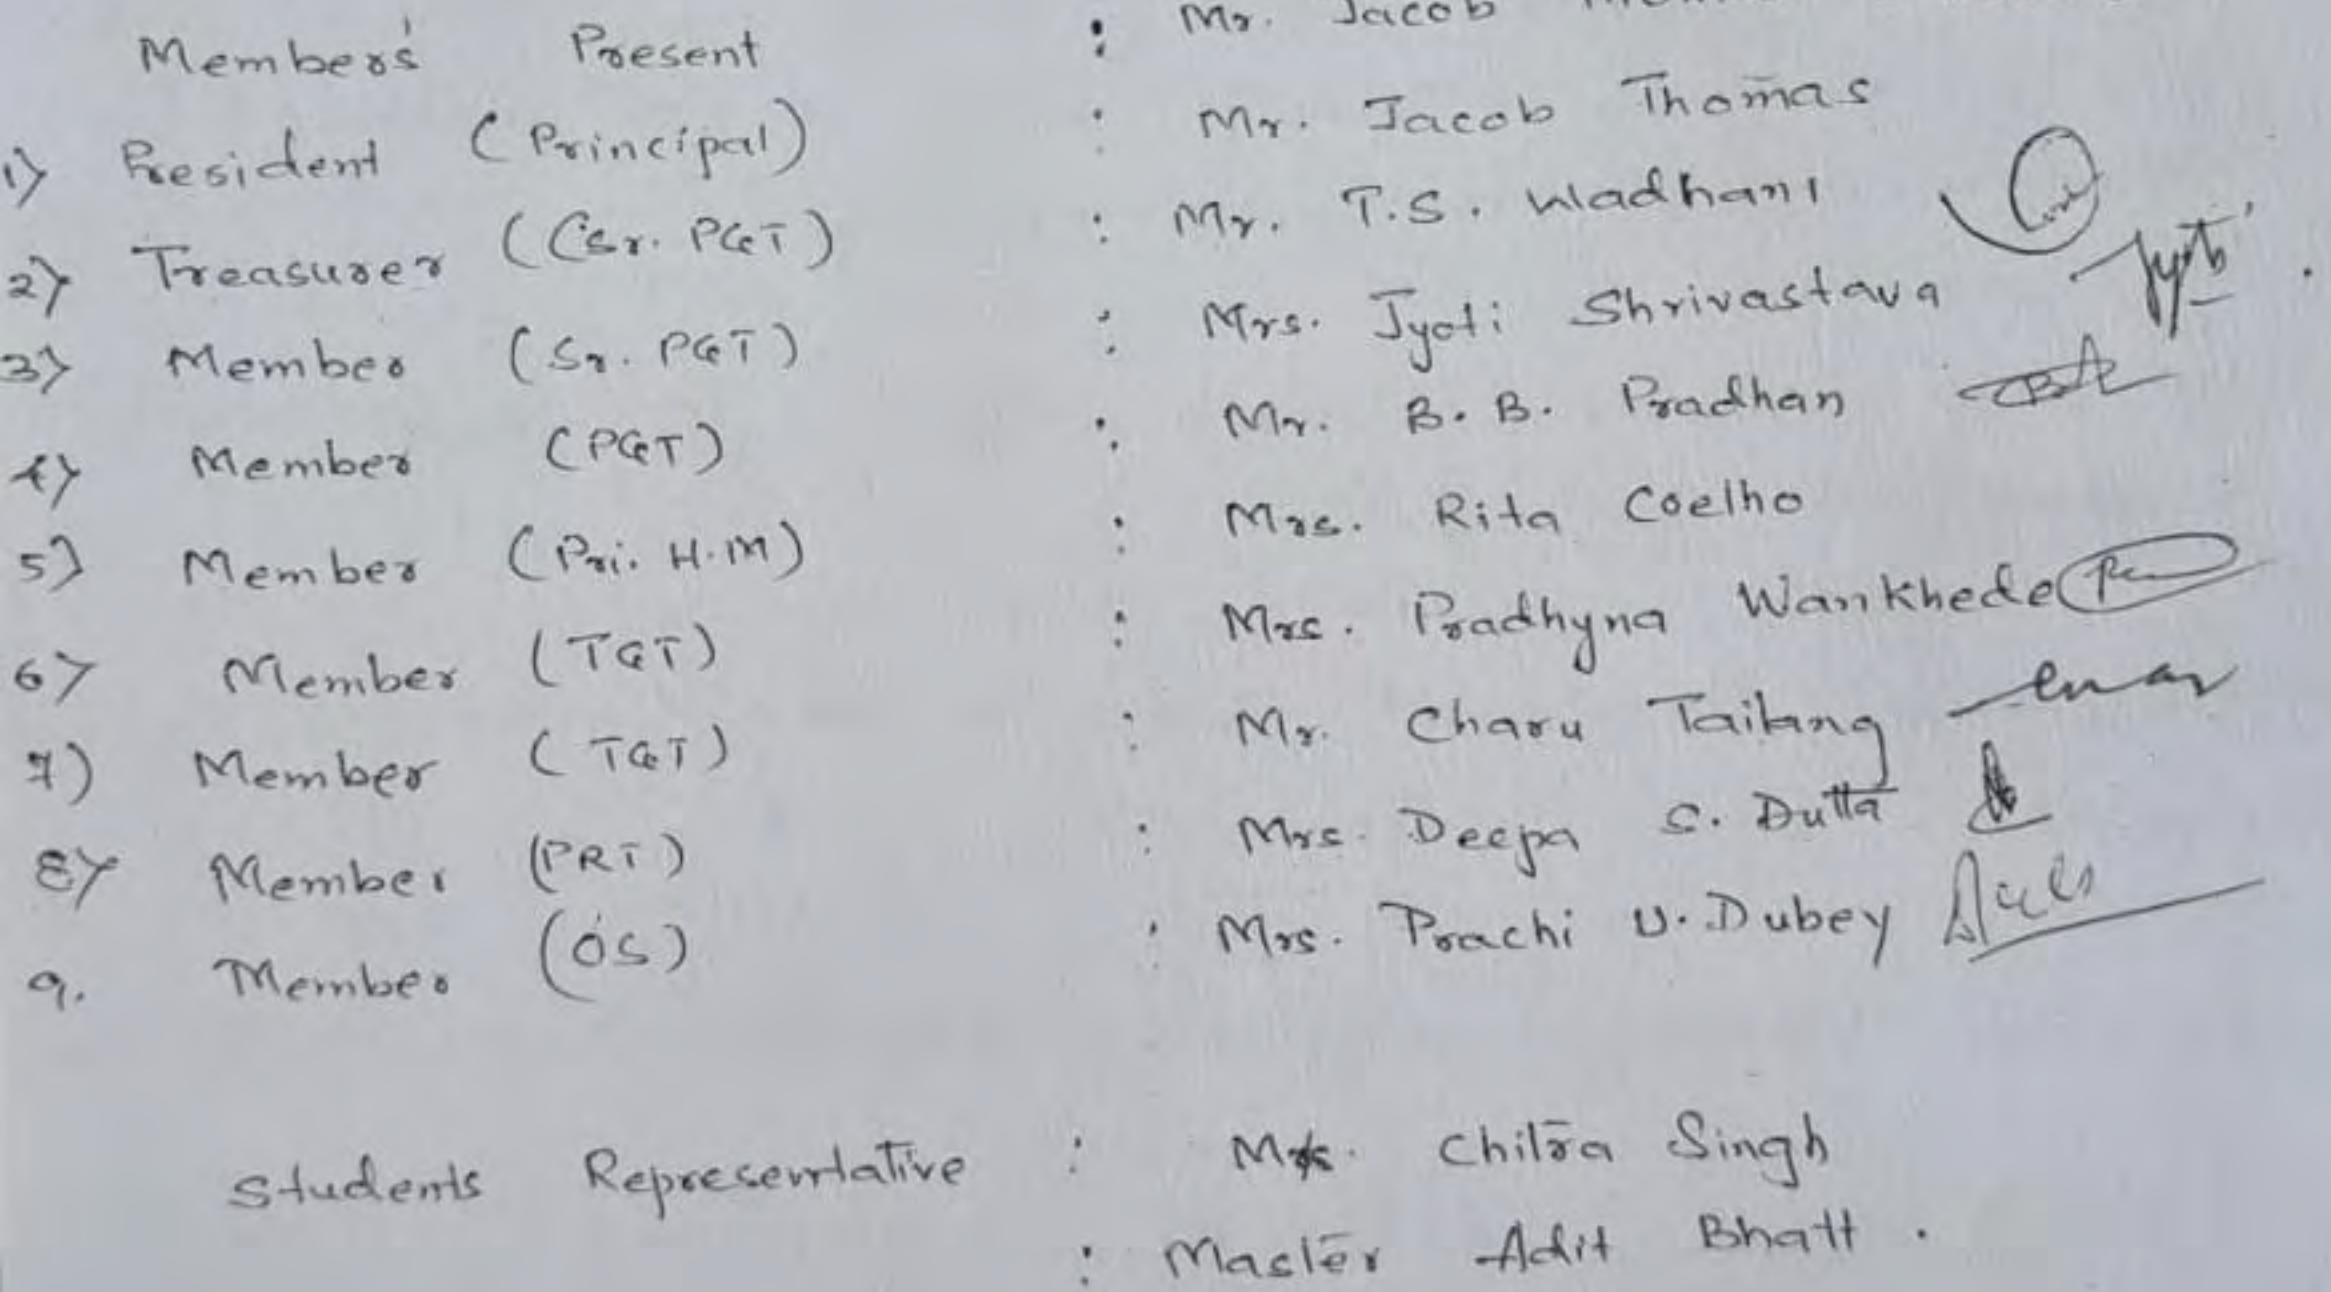 : Mr. Jacob
Member's Present
1) President (Principal) : Mr. Jacob Thomas
2) Treasurer (Sr. PGT) : Mr. T.S. Wadhani
3) Member (Sr. PGT) : Mrs. Jyoti Shrivastava Jyoti
4) Member (PGT) : Mr. B. B. Pradhan
5) Member (Pri. H.M) : Mrs. Rita Coelho
6) Member (TGT) : Mrs. Pradhyna Wankhede
7) Member (TGT) : Mr. Charu Tailang
8) Member (PRT) : Mrs. Deepa S. Dutta
9. Member (OS) : Mrs. Prachi U. Dubey
Students Representative : Ms. Chitra Singh
: Master Adit Bhatt.